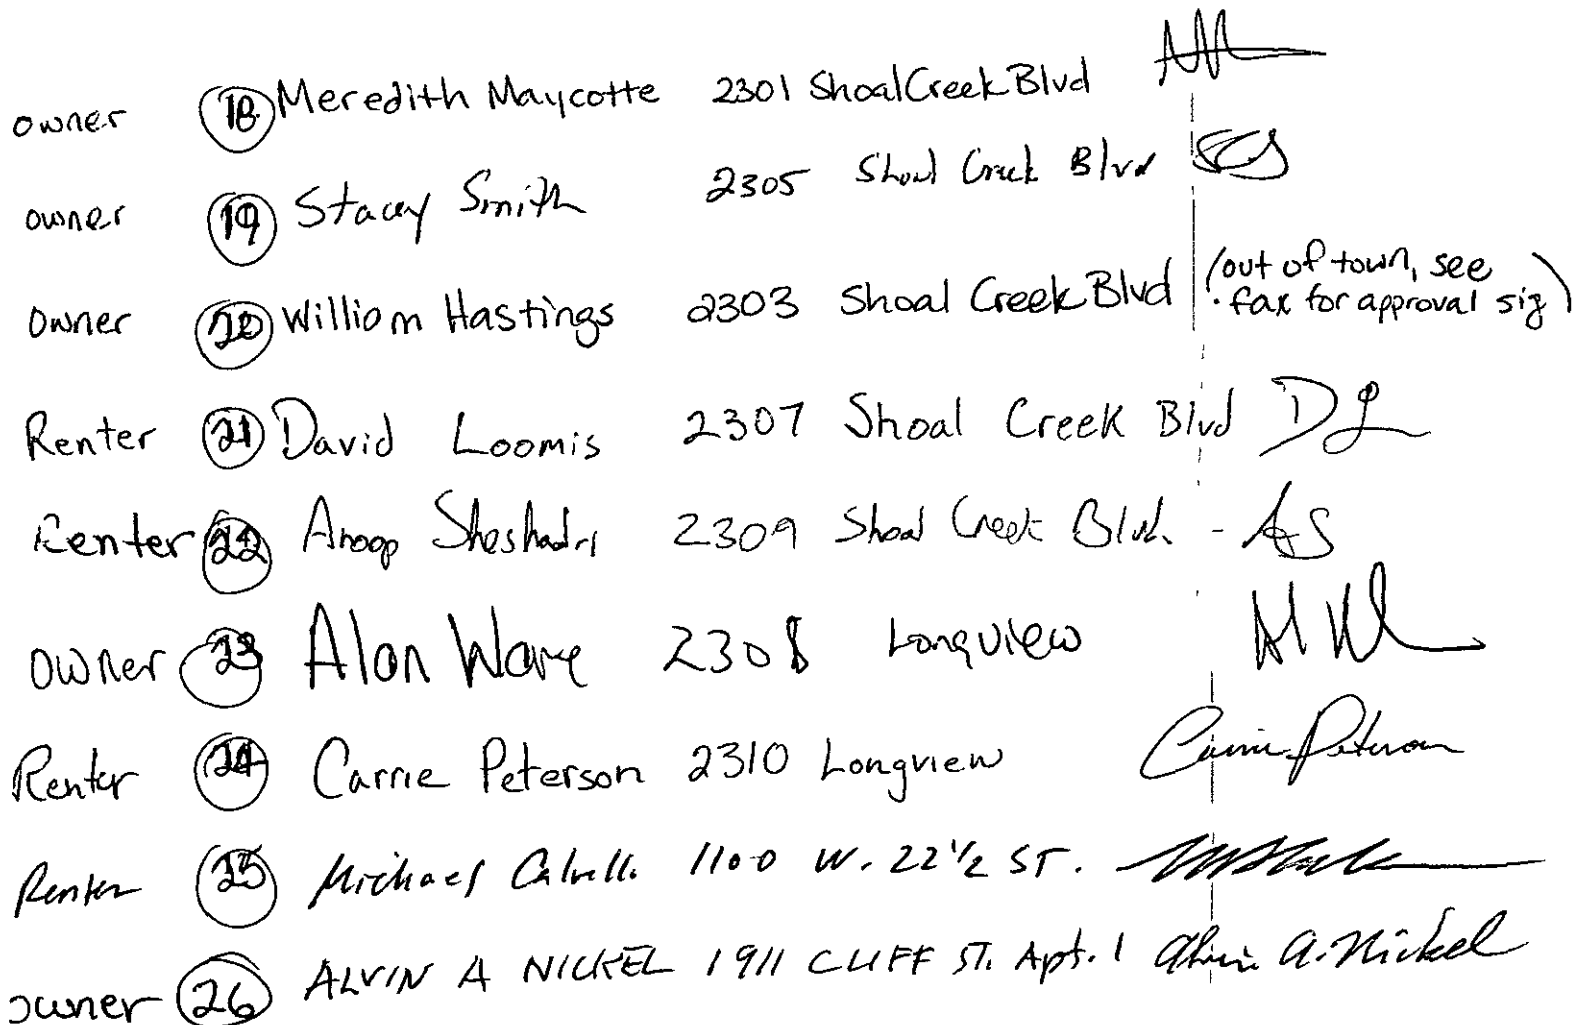 owner 18 Meredith Maycotte 2301 Shoal Creek Blvd
owner 19 Stacey Smith 2305 Shoal Creek Blvd SCS
Owner 20 William Hastings 2303 Shoal Creek Blvd (out of town, see
fax for approval sig)
Renter 21 David Loomis 2307 Shoal Creek Blvd DL
Renter 22 Anoop Sheshadri 2309 Shoal Creek Blvd. - AS
owner 23 Alan Ware 2308 Longview
Renter 24 Carrie Peterson 2310 Longview Carrie Peterson
Renter 25 Michael 1100 W. 22 1/2 ST.
owner 26 ALVIN A NICKEL 1911 CLIFF ST. Apt. 1 Alvin A. Nickel